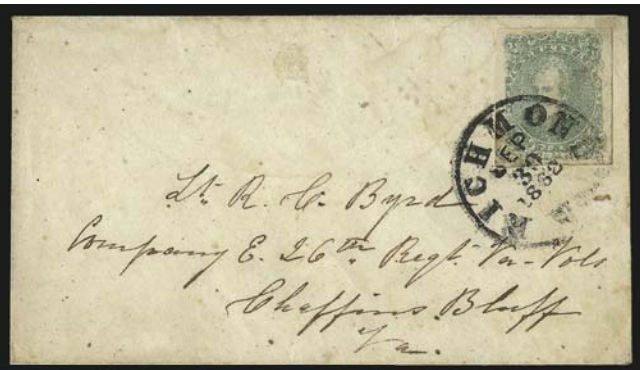 RICHMOND
SEP
30
1862
Lt. R. C. Byrd
Company E. 26th Regt. Va. Vols
Chaffins Bluff
Va.